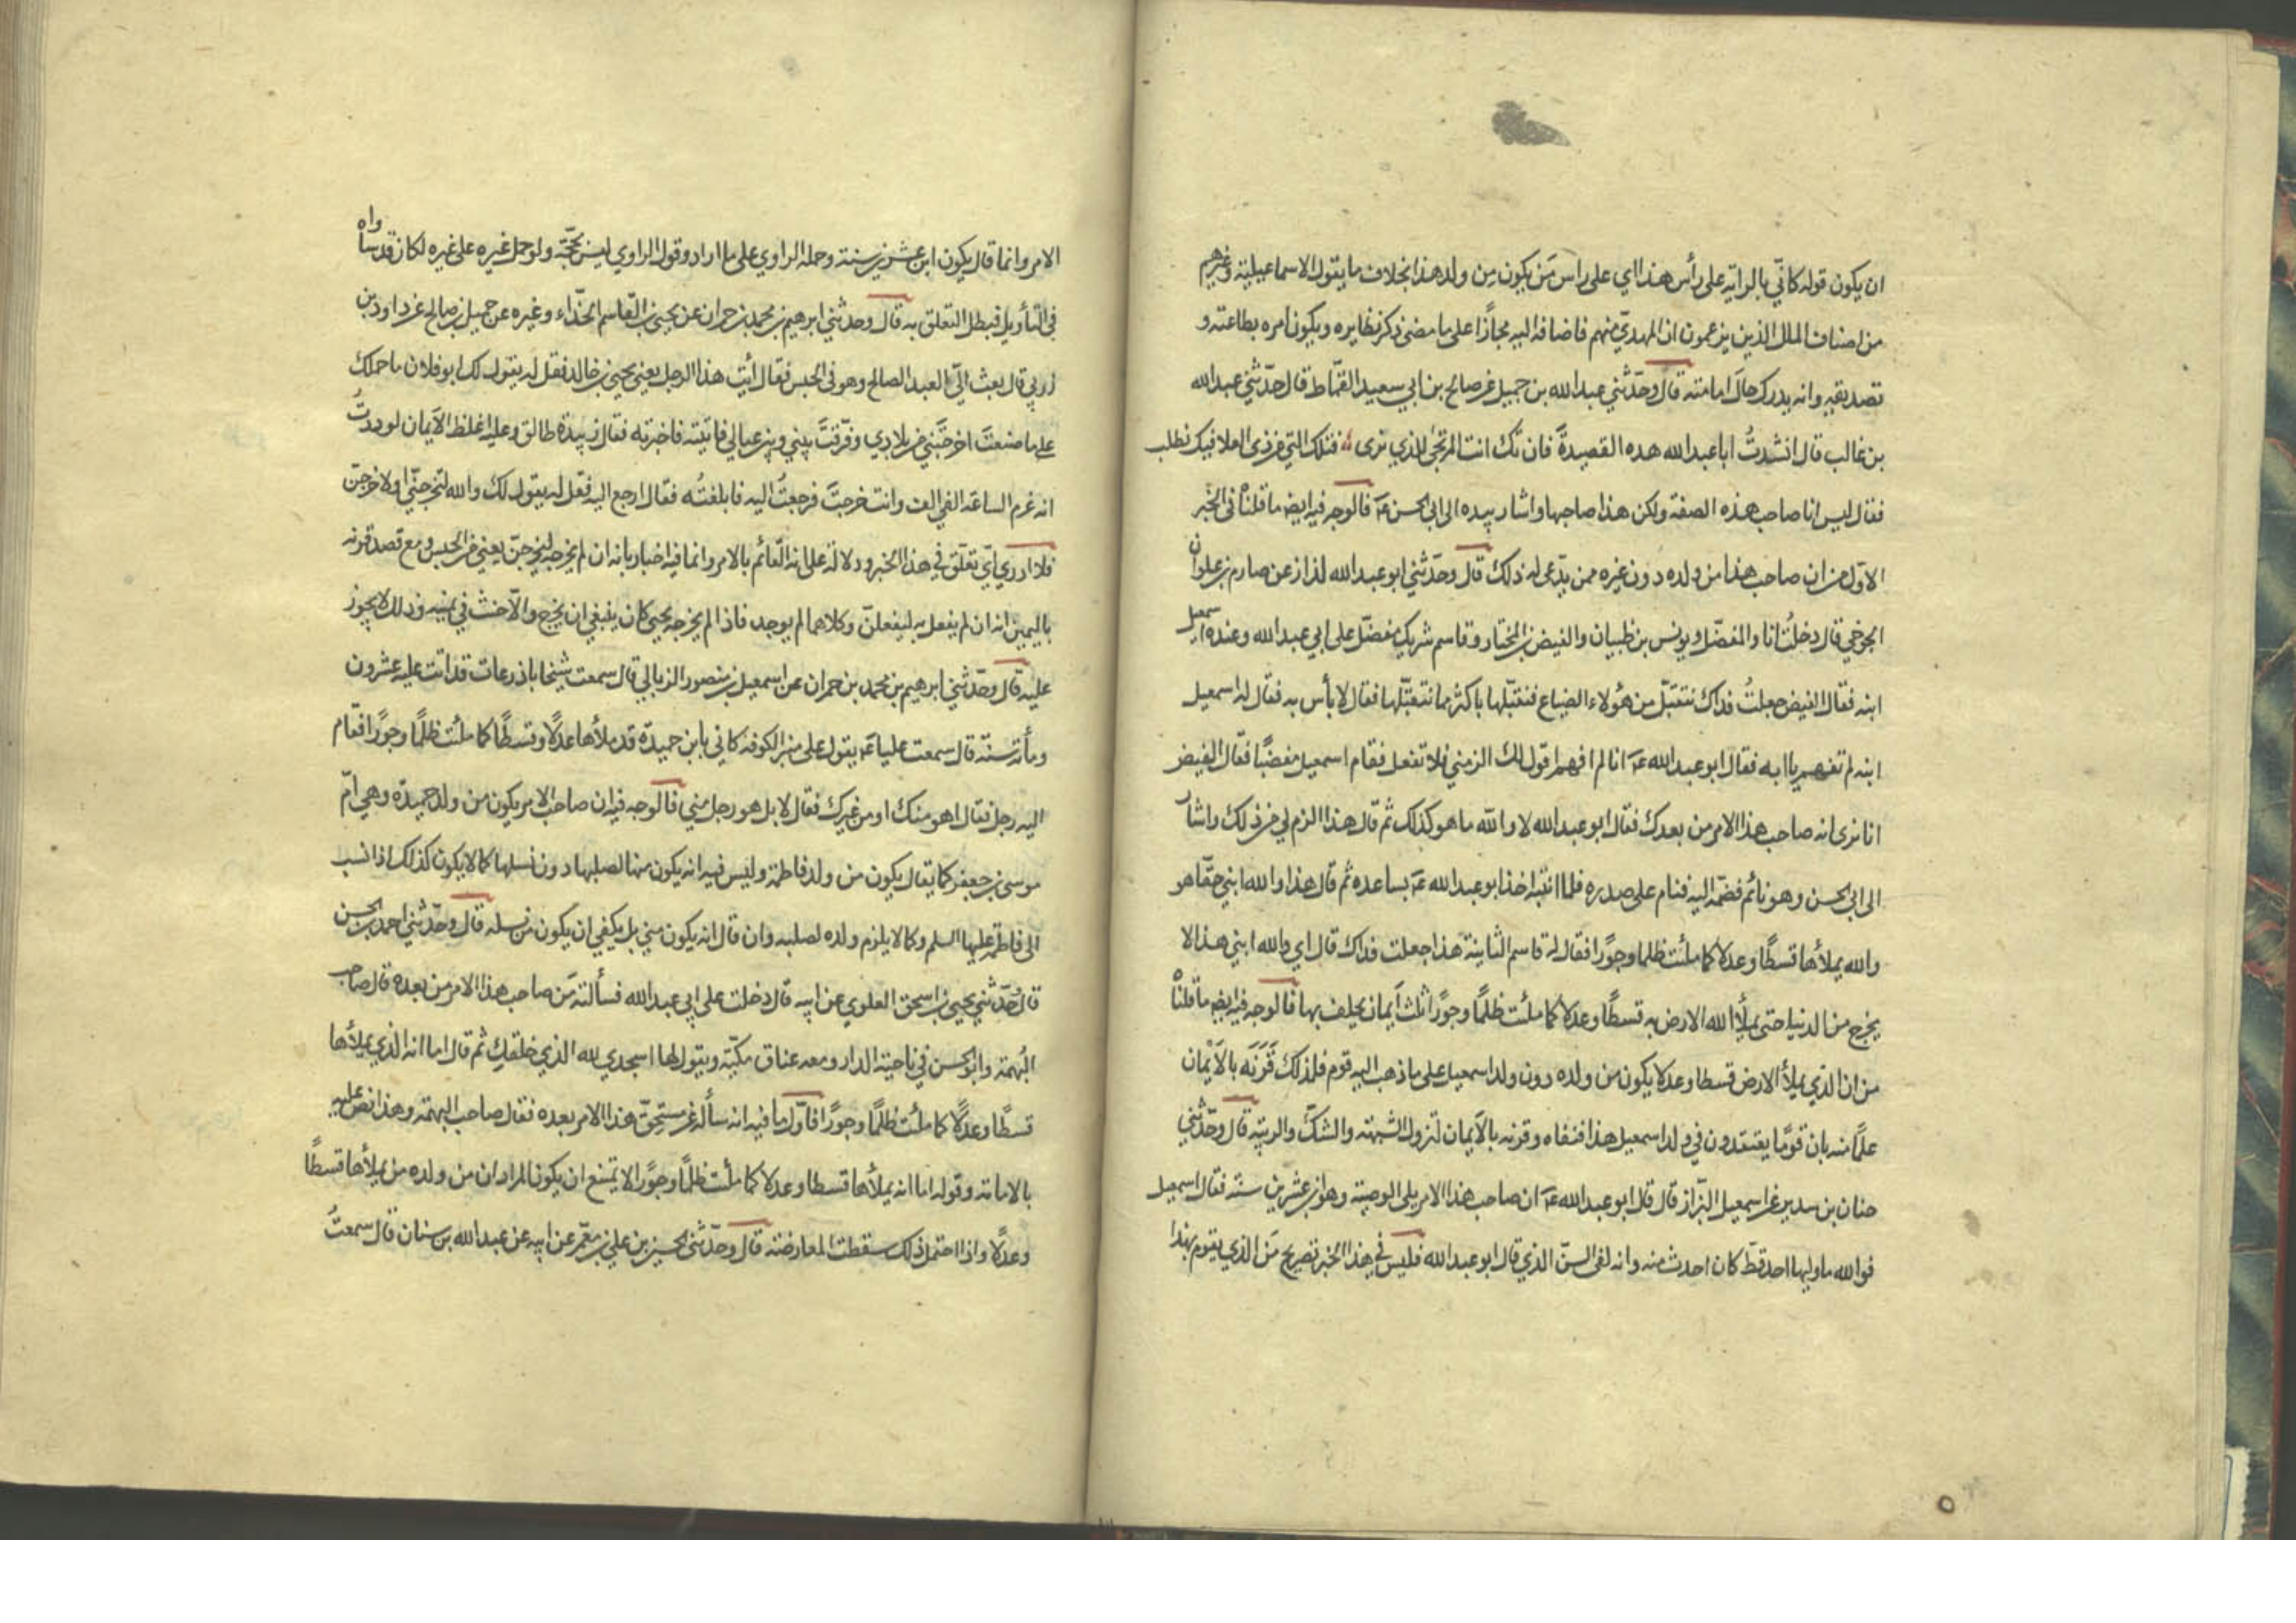 ان يكون قوله كاني بالراية على رأس هذا اي على راس مَن يكون مِن ولد هذا بخلاف ما يقول الاسماعيلية وغيرهم
من اصناف الملل الذين يزعمون ان المهدي منهم فاضافه اليه مجازًا على ما مضى ذكر نظايره ويكون امره بطاعته و
تصديقه وانه يدرك حال امامته قال وحدّثني عبدالله بن جميل عن صالح بن ابي سعيد القمّاط قال حدّثني عبدالله
بن غالب قال انشدتُ ابا عبد الله هذه القصيدة فان تك انت المرتجى للذي نرى فتلك التي من ذي العلا فيك نطلب
فقال ليس انا صاحب هذه الصفة ولكن هذا صاحبها واشار بيده الى ابي الحسن عَ فالوجه فيه ايضا ما قلناه في الخبر
الاول من ان صاحب هذا من ولده دون غيره ممن يدّعى له ذلك قال وحدّثني ابو عبد الله لذاذ عن صارم بن علوان
الجوخي قال دخلتُ انا والمفضّل ويونس بن ظبيان والفيض بن المختار وقاسم شريك مفضّل على ابي عبد الله وعنده اسمعيل
ابنه فقال الفيض جعلتُ فداك نتقبّل من هؤلاء الضياع فنقبّلها باكثر مما نتقبّلها فقال لا بأس به فقال له اسمعيل
ابنه لم تفهم يا ابه فقال ابو عبد الله عَ انا لم افهم اقول لك الزمني فلا تفعل فقام اسمعيل مغضبًا فقال الفيض
انا نرى انه صاحب هذا الامر من بعدك فقال ابو عبد الله لا والله ما هو كذلك ثم قال هذا الزم لي من ذلك واشار
الى ابي الحسن وهو نائم فضمّه اليه فنام على صدره فلما انتبه اخذ ابو عبد الله عَ بساعده ثم قال هذا والله ابني حقّا هو
والله يملأها قسطًا وعدلا كما ملئت ظلما وجورًا فقال له قاسم الثانية هذا جعلت فداك قال اي والله ابني هذا لا
يخرج من الدنيا حتى يملأ الله الارض به قسطًا وعدلا كما ملئت ظلمًا وجورًا ثلث أيمان يحلف بها فالوجه فيه ايضا ما قلناه
من ان الذي يملأ الارض قسطا وعدلا يكون من ولده دون ولد اسمعيل على ما ذهب اليه قوم فلذلك قَرَنَه بالأيمان
علمًا منه بان قومًا يعتقدون في ولد اسمعيل هذا فنفاه وقرنه بالأيمان لتزول الشبهة والشكّ والريبة قال وحدّثني
حنان بن سدير عن اسمعيل البزّاز قال قال ابو عبد الله عَ ان صاحب هذا الامر يلي الوصية وهو ابن عشرين سنة فقال اسمعيل
فوالله ما وليها احد قطّ كان احدث منه وانه لفي السنّ الذي قال ابو عبد الله فليس في هذا الخبر تصريح مَن الذي يقوم بهذا
الامر وانما قال يكون ابن عشرين سنة وحمله الراوي على ما اراد وقول الراوي ليس بحجّة ولو حمل غيره على غيره لكان قد ساواه
في التأويل فبطل التعلق به قال وحدثني ابرهيم بن محمد بن حمران عن يحيى بن القاسم الحذّاء وغيره عن جميل بن صالح عن داود بن
زربي قال بعث اليّ العبد الصالح وهو في الحبس فقال أيت هذا الرجل يعني يحيى بن خالد فقل له يقول لك ابو فلان ما حملك
على ما صنعتَ اخرجتَني من بلادي وفرّقتَ بيني وبين عيالي فاتيته فاخبرته فقال زبيدة طالق وعليه اغلظ الأيمان لوددتُ
انه غرم الساعة الفي الف وانت خرجتَ فرجعتُ اليه فابلغتُه فقال ارجع اليه فقل له يقول لك والله لتخرجنّي او لاخرجنّ
فلا ادري اي تعلّق في هذا الخبر ودلالة على انه القائم بالامر وانما فيه اخبار بانه ان لم يخرجه ليخرجنّ يعني من الحبس ومع قصد قرنه
باليمين انه ان لم يفعل به ليفعلنّ وكلاهما لم يوجد فاذا لم يخرجه يحيى كان ينبغي ان يخرج والّا حنث في يمينه وذلك لا يجوز
عليه قال وحدّثني ابرهيم بن محمد بن حمران عن اسمعيل بن منصور الزبالي قال سمعت شيخا باذرعات قد اتت عليه عشرون
ومأته سنة قال سمعت عليا عَ يقول على منبر الكوفة كاني بابن حميدة قد ملأها عدلًا وقسطًا كما ملئت ظلمًا وجورًا فقام
اليه رجل فقال اهو منك او من غيرك فقال لا بل هو رجل مني فالوجه فيه ان صاحب الامر يكون من ولد حميدة وهي امّ
موسى بن جعفر كما يقال يكون من ولد فاطمة وليس فيه انه يكون منها لصلبها دون نسلها كما لا يكون كذلك اذا نسب
الى فاطمة عليها السلم وكما لا يلزم ولده لصلبه وان قال انه يكون مني بل يكفي ان يكون من نسله قال وحدّثني احمد بن الحسن
قال حدّثني يحيى بن اسحق العلوي عن ابيه قال دخلت على ابي عبد الله فسألته مَن صاحب هذا الامر من بعده قال صاحب
البُهمة وابو الحسن في ناحية الدار ومعه عناق مكّية ويقول لها اسجدي لله الذي خلقكِ ثم قال اما انه الذي يملأها
قسطًا وعدلًا كما ملئت ظلمًا وجورًا فاوّل ما فيه انه سأله عن مستحقّ هذا الامر بعده فقال صاحب البهمة وهذا نص عليه
بالامامة وقوله اما انه يملأها قسطا وعدلا كما ملئت ظلمًا وجورًا لا يمتنع ان يكون المراد ان من ولده من يملأها قسطًا
وعدلًا واذا احتمل ذلك سقطت المعارضة قال وحدّثني الحسين بن علي بن معمّر عن ابيه عن عبد الله بن سنان قال سمعتُ